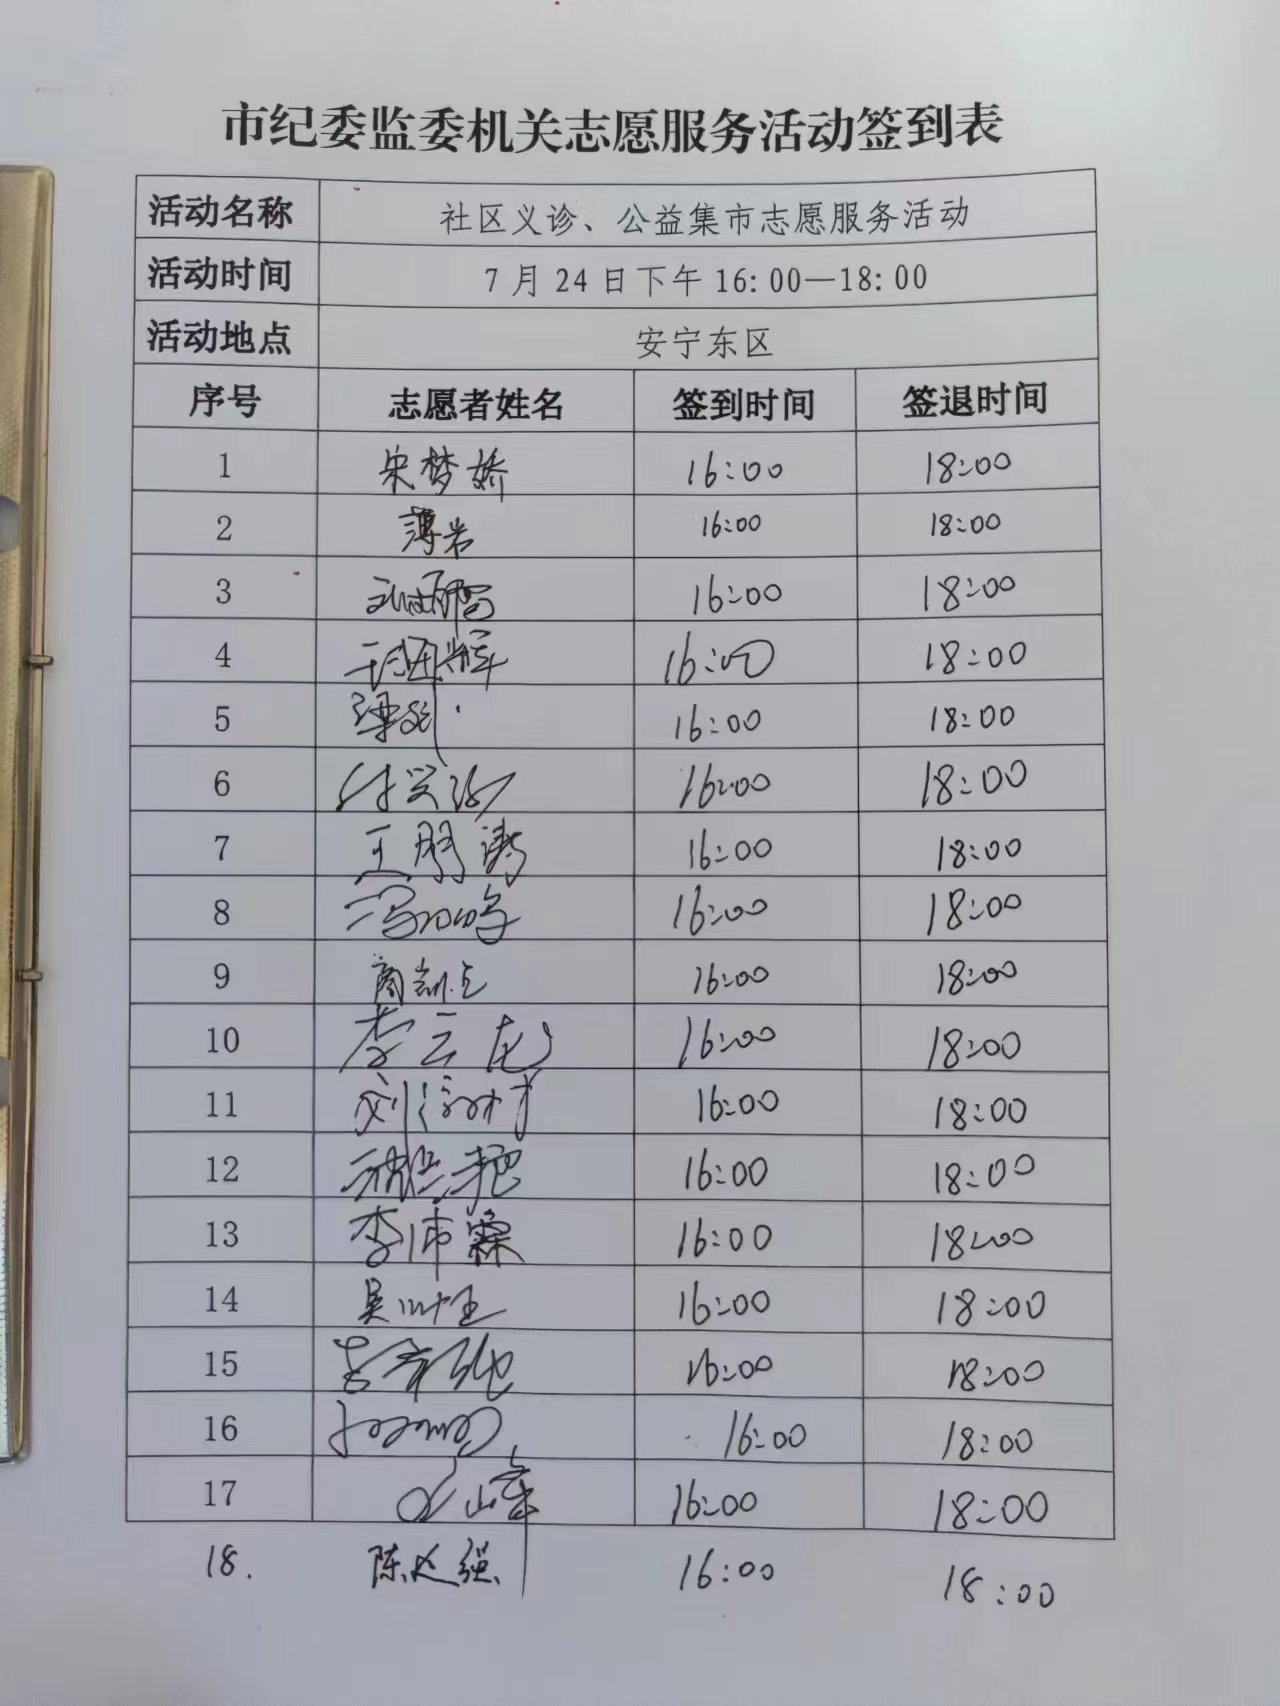 市纪委监委机关志愿服务活动签到表
活动名称 社区义诊、公益集市志愿服务活动
活动时间 7月24日下午16:00—18:00
活动地点 安宁东区
序号 志愿者姓名 签到时间 签退时间
1 宋梦娇 16:00 18:00
2 薄岩 16:00 18:00
3 16:00 18:00
4 16:00 18:00
5 16:00 18:00
6 16:00 18:00
7 王朋涛 16:00 18:00
8 16:00 18:00
9 商凯 16:00 18:00
10 李云龙 16:00 18:00
11 刘 16:00 18:00
12 16:00 18:00
13 李沛霖 16:00 18:00
14 吴 16:00 18:00
15 16:00 18:00
16 16:00 18:00
17 16:00 18:00
18. 陈建强 16:00 18:00